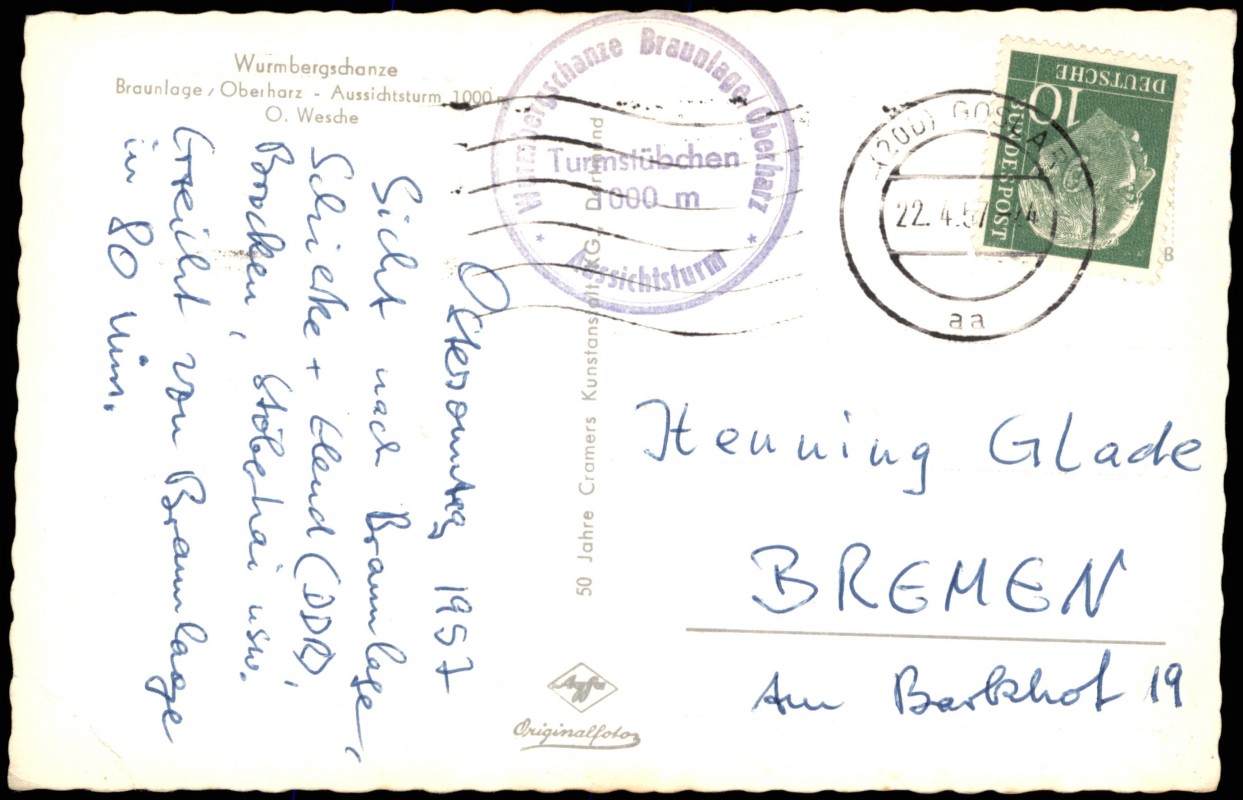 Wurmbergschanze
Braunlage / Oberharz - Aussichtsturm 1000 m
O. Wesche
Ostersonntag 1957
Sicht nach Braunlage,
Schierke + Elend (DDR),
Brocken, Stöberhai usw.
Erreicht von Braunlage
in 80 Min.
50 Jahre Cramers Kunstanstalt KG., Dortmund
Agfa
Originalfoto
Wurmbergschanze Braunlage/Oberharz
Turmstübchen
1000 m
* Aussichtsturm *
(20b) GOSLAR
22.4.57
aa
DEUTSCHE
BUNDESPOST
10
B
Henning Glade
BREMEN
Am Barkhof 19